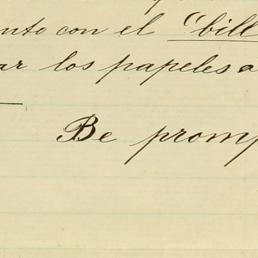 nto con el "bill
ar los papeles a
Be promp